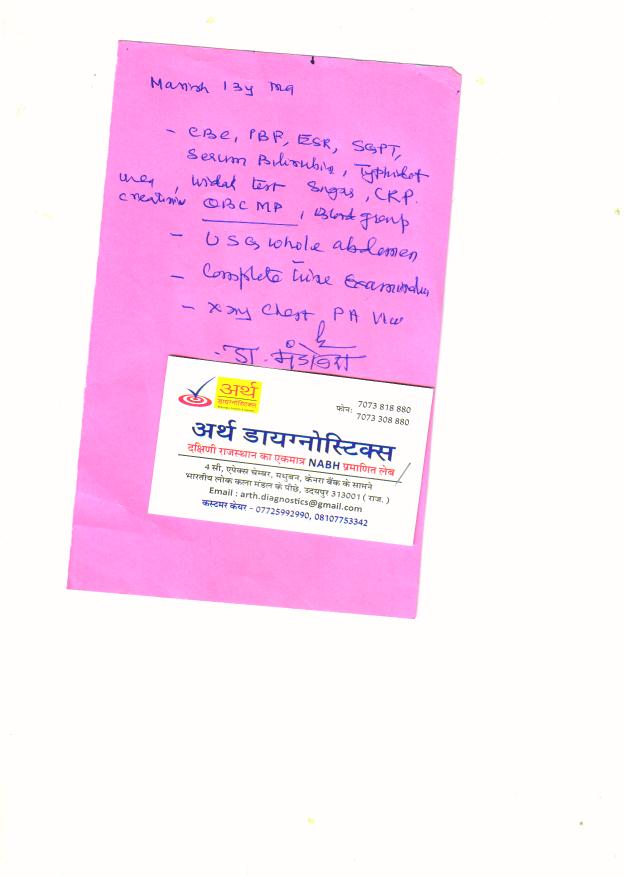 Manish 13y
- CBC, PBF, ESR, SGPT,
Serum Bilirubin, Typhidot
urea, widal test Sugar, CRP.
creatinine QBC MP, Blood group
- USG whole abdomen
- Complete Urine Examination
- X ray Chest PA View
डा.
अर्थ
डायग्नोस्टिक्स
फोन: 7073 818 880
7073 308 880
अर्थ डायग्नोस्टिक्स
दक्षिणी राजस्थान का एकमात्र NABH प्रमाणित लेब
4 सी, एपेक्स चेम्बर, मधुबन, केनरा बैंक के सामने
भारतीय लोक कला मंडल के पीछे, उदयपुर 313001 ( राज. )
Email : arth.diagnostics@gmail.com
कस्टमर केयर - 07725992990, 08107753342